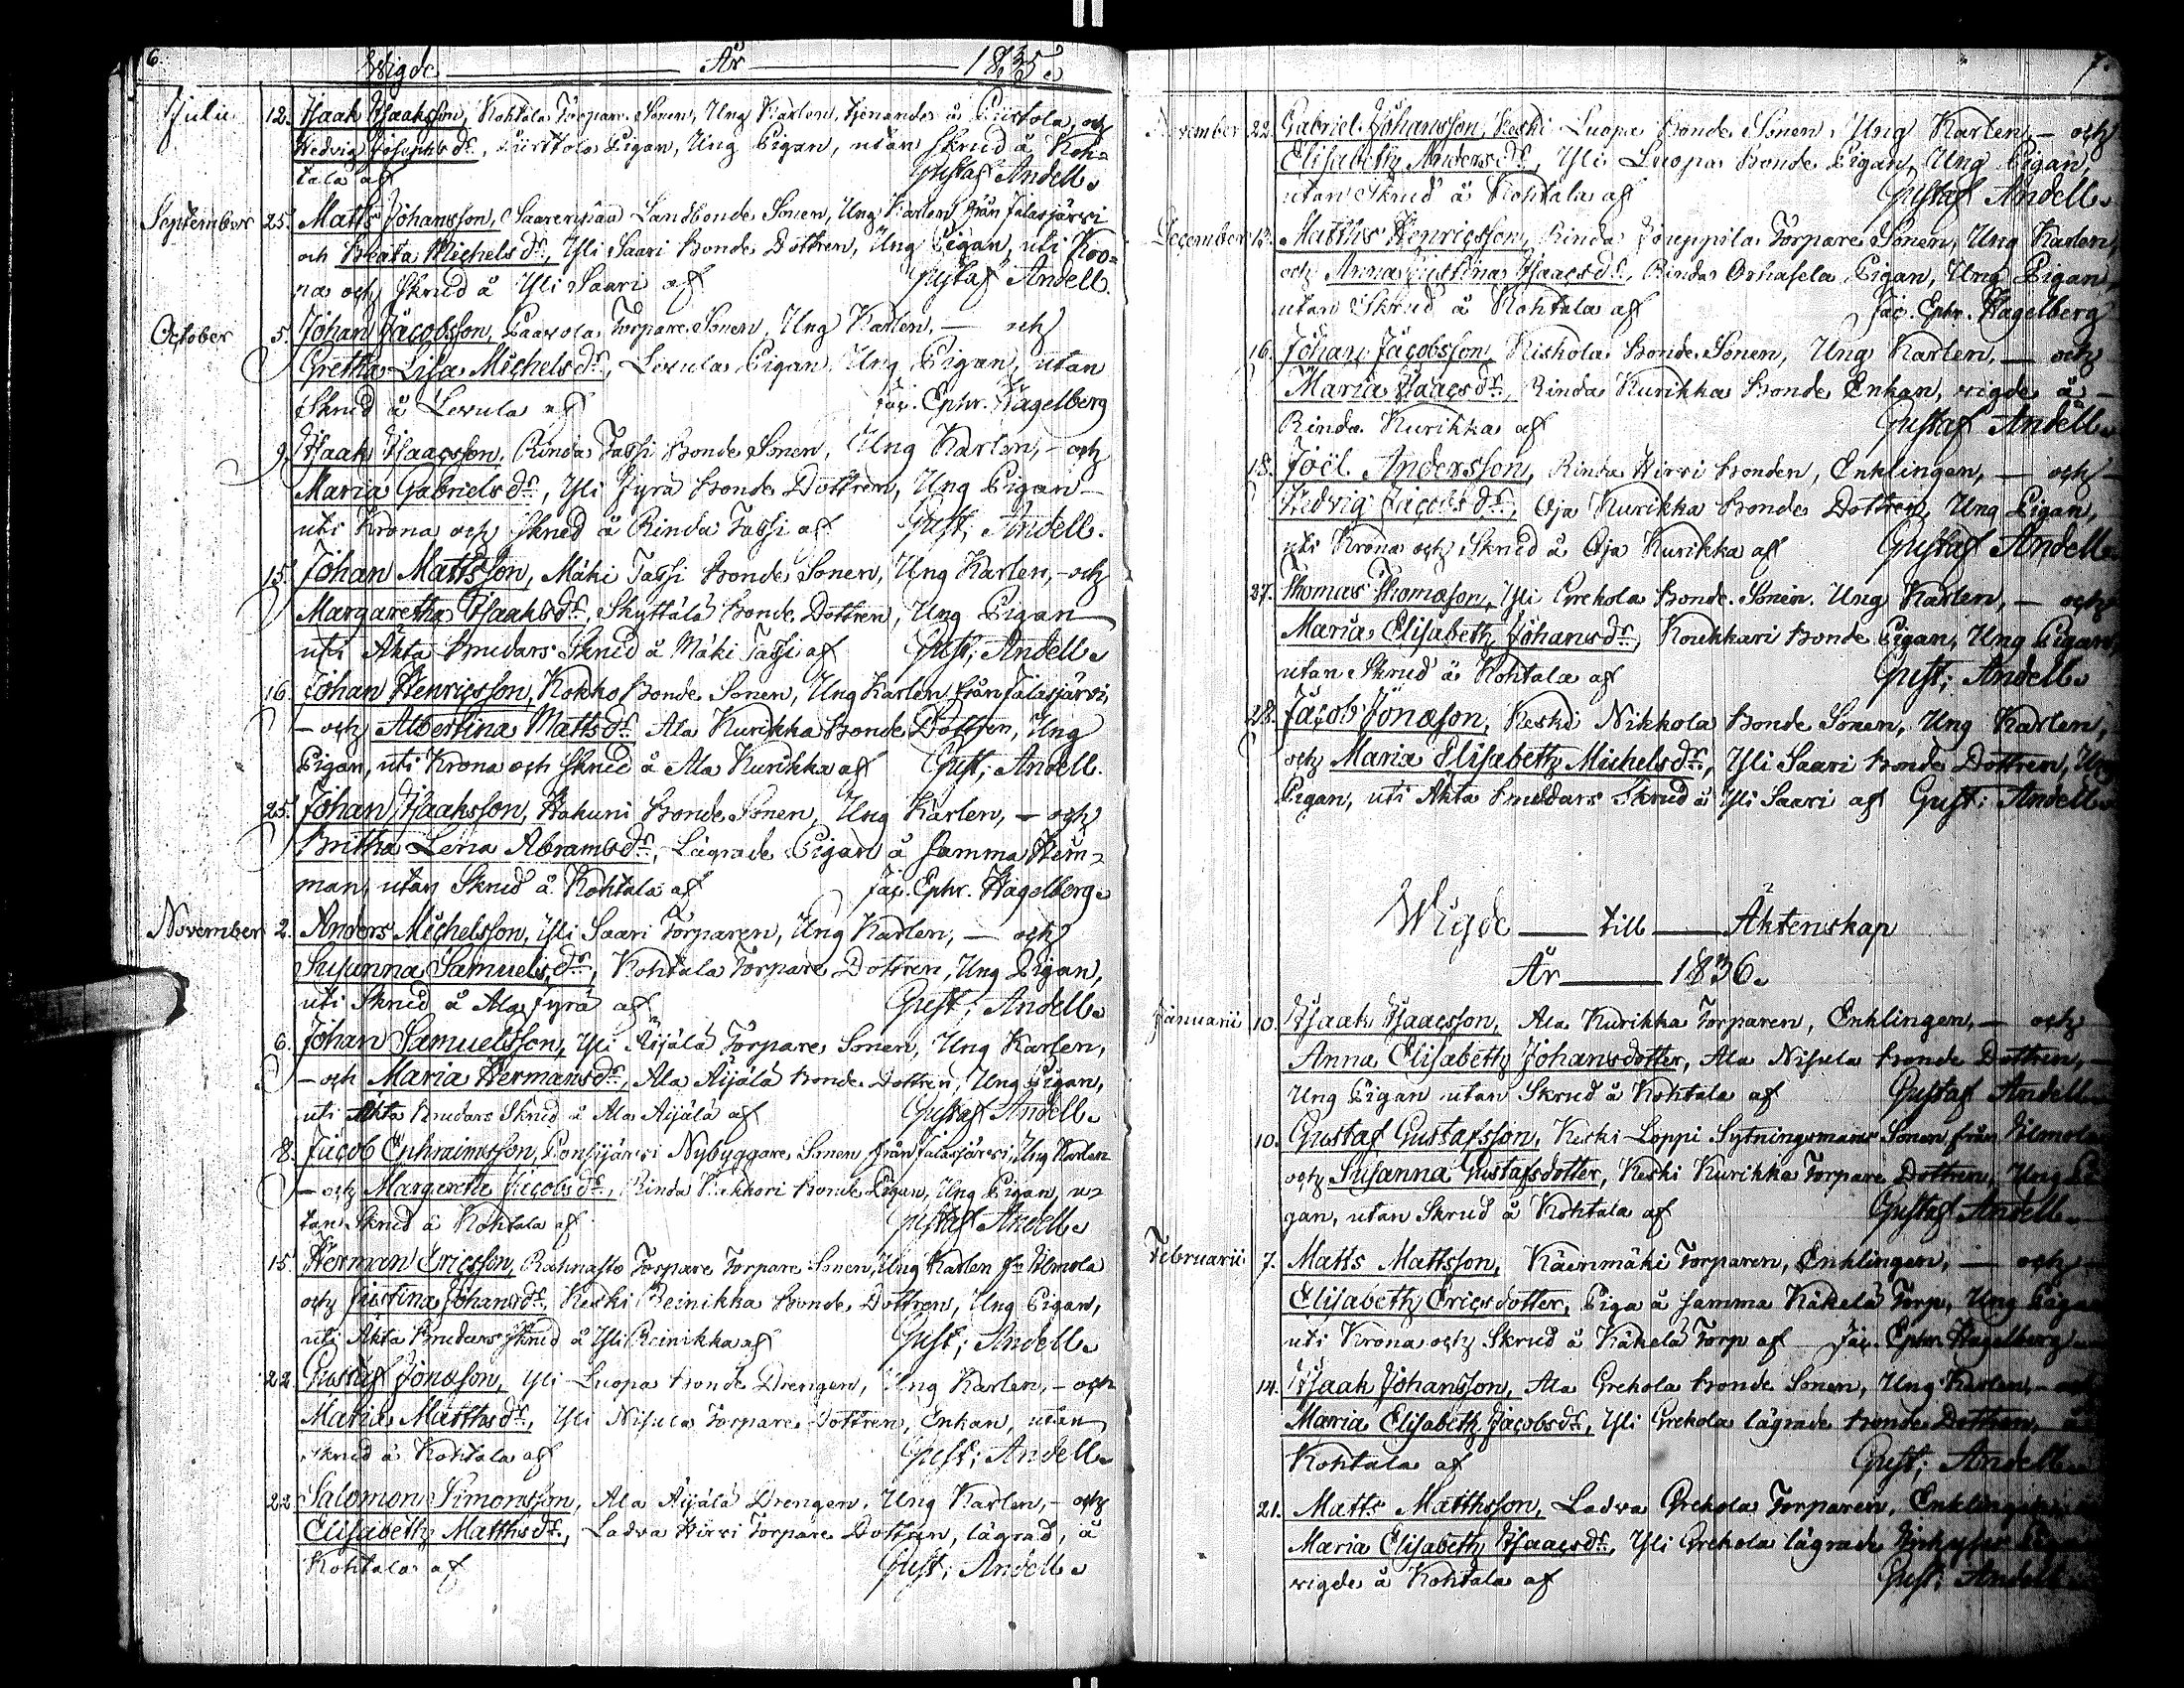 6.
Wigde År 1835.
Julii 12. Isaak Isaaksson, Kohtala Torpare Sonen, Ung Karlen, tjenandes å Piirtola, och
Hedvig Josephs dr., Piirtola Pigan, Ung Pigan, utan Skrud å Koh-
tala af Gustaf Andell.
September 25. Matts Johansson, Landbonde Sonen, Ung Karlen, från Jalasjärvi
och Beata Michels dr., Yli Saari Bonde Dottren, Ung Pigan, uti Kro-
na och Skrud å Yli Saari af Gustaf Andell.
October 5. Johan Jacobsson, Paavola Torpare Sonen, Ung Karlen, — och
Gretha Lisa Michels dr., Levula Pigan, Ung Pigan, utan
Skrud å Levula af Jac. Ephr. Hagelberg
9. Isaak Isaacsson, Rinda Tassi Bonde Sonen, Ung Karlen, – och
Maria Gabriels dr., Yli Jyrä Bonde Dottren, Ung Pigan –
uti Krona och Skrud å Rinda Tassi af Gust; Andell.
15. Johan Mattsson, Mäki Tassi Bonde Sonen, Ung Karlen, – och
Margaretha Isaaks dr., Skyttälä Bonde Dottren, Ung Pigan
uti Äkta Brudars Skrud å Mäki Tassi af Gust; Andell.
16. Johan Henricsson, Kokko Bonde Sonen, Ung Karlen från Jalasjärvi,
– och Albertina Matts dr. Ala Kurikka Bonde Dottren, Ung
Pigan, uti Krona och Skrud å Ala Kurikka af Gust; Andell.
25. Johan Isaaksson, Hakuni Bonde Sonen, Ung Karlen, – och
Britha Lena Abrams dr., Lägrade Pigan å Samma Hem-
man, utan Skrud å Kohtala af Jac. Ephr. Hagelberg.
November 2. Anders Michelsson, Yli Saari Torparen, Ung Karlen, — och
Susanna Samuels dr., Kohtala Torpare Dottren, Ung Pigan,
uti Skrud å Ala Jyrä af Gust; Andell.
6. Johan Samuelsson, Yli Äijälä Torpare Sonen, Ung Karlen,
– och Maria Hermans dr., Ala Äijälä Bonde Dottren, Ung Pigan,
uti Äkta Brudars Skrud å Ala Äijälä af Gustaf Andell.
8. Jacob Ephraimsson, Nybyggare Sonen från Jalasjärvi, Ung Karlen
– och Margareta Jacobs dr., Rinda Bonde Pigan, Ung Pigan, u-
tan Skrud å Kohtala af Gustaf Andell.
15. Herman Ericsson, Rahnasto Torpare Torpare Sonen, Ung Karlen fr. Ilmola
och Justina Johans dr., Keski Reinikka Bonde Dottren, Ung Pigan,
uti Äkta Brudars Skrud å Yli Reinikka af Gust; Andell.
22 Gustaf Jonasson, Yli Luopa Bonde Drengen, Ung Karlen, – och
Maria Matths dr., Yli Nisula Torpare Dottren, Enkan, utan
Skrud å Kohtala af Gust; Andell.
22 Salomon Simonsson, Ala Äijälä Drengen, Ung Karlen, – och
Elisabeth Matths dr., Ladva Hirvi Torpare Dottren, lägrad, å
Kohtala af Gust; Andell.
7.
November 22. Gabriel Johansson, Keski Luopa Bonde Sonen, Ung Karlen, – och
Elisabeth Anders dr., Yli Luopa Bonde Pigan, Ung Pigan,
utan Skrud å Kohtala af Gustaf Andell.
December 13. Matths Henricsson, Rinda Jouppila Torpare Sonen, Ung Karlen,
och Anna Justina Isaacs dr., Rinda Pigan, Ung Pigan,
utan Skrud å Kohtala af Jac. Ephr. Hagelberg
16. Johan Jacobsson, Kiskola Bonde Sonen, Ung Karlen, — och
Maria Isaacs dr., Rinda Kurikka Bonde Enkan, vigde å –
Rinda Kurikka af Gustaf Andell.
18. Joël Andersson, Rinda Hirvi Bonden, Enklingen, — och –
Hedvig Jacobs dr., Oja Kurikka Bonde Dottren, Ung Pigan,
uti Krona och Skrud å Oja Kurikka af Gustaf Andell.
27. Thomas Thomason, Yli Grekola Bonde Sonen, Ung Karlen, – och
Maria Elisabeth Johans dr., Koukkari Bonde Pigan, Ung Pigan,
utan Skrud å Kohtala af Gust; Andell.
28. Jacob Jonason, Keski Nikkola Bonde Sonen, Ung Karlen,
och Maria Elisabeth Michels dr., Yli Saari Bonde Dottren, Ung
Pigan, uti Äkta Bruddars Skrud å Yli Saari af Gust: Andell.
Wigde — till — Äktenskap
År — 1836.
Januarii 10. Isaak Isaacsson, Ala Kurikka Torparen, Enklingen, – och
Anna Elisabeth Johansdotter, Ala Nisula Bonde Dottren,
Ung Pigan utan Skrud å Kohtala af Gustaf Andell.
10. Gustaf Gustafsson, Keski Loppi Sytningsmans Sonen från Ilmola
och Susanna Gustafsdotter, Keski Kurikka Torpare Dottren, Ung Pi-
gan, utan Skrud å Kohtala af Gustaf Andell.
Februarii 7. Matts Mattsson, Käenmäki Torparen, Enklingen, — och
Elisabeth Ericsdotter, Piga å samma Käkelä Torp, Ung Pigan
uti Krona och Skrud å Käkelä Torp af Jac. Ephr. Hagelberg
14. Isaak Johansson, Ala Grekola Bonde Sonen, Ung Karlen, – och
Maria Elisabeth Jacobs dr., Yli Grekola lägrade Bonde Dottren, å
Kohtala af Gust; Andell.
21. Matts Matthsson, Ladva Grekola Torparen, Enklingen
Maria Elisabeth Isaacs dr., Yli Grekola lägrade
vigde å Kohtala af Gust; Andell.